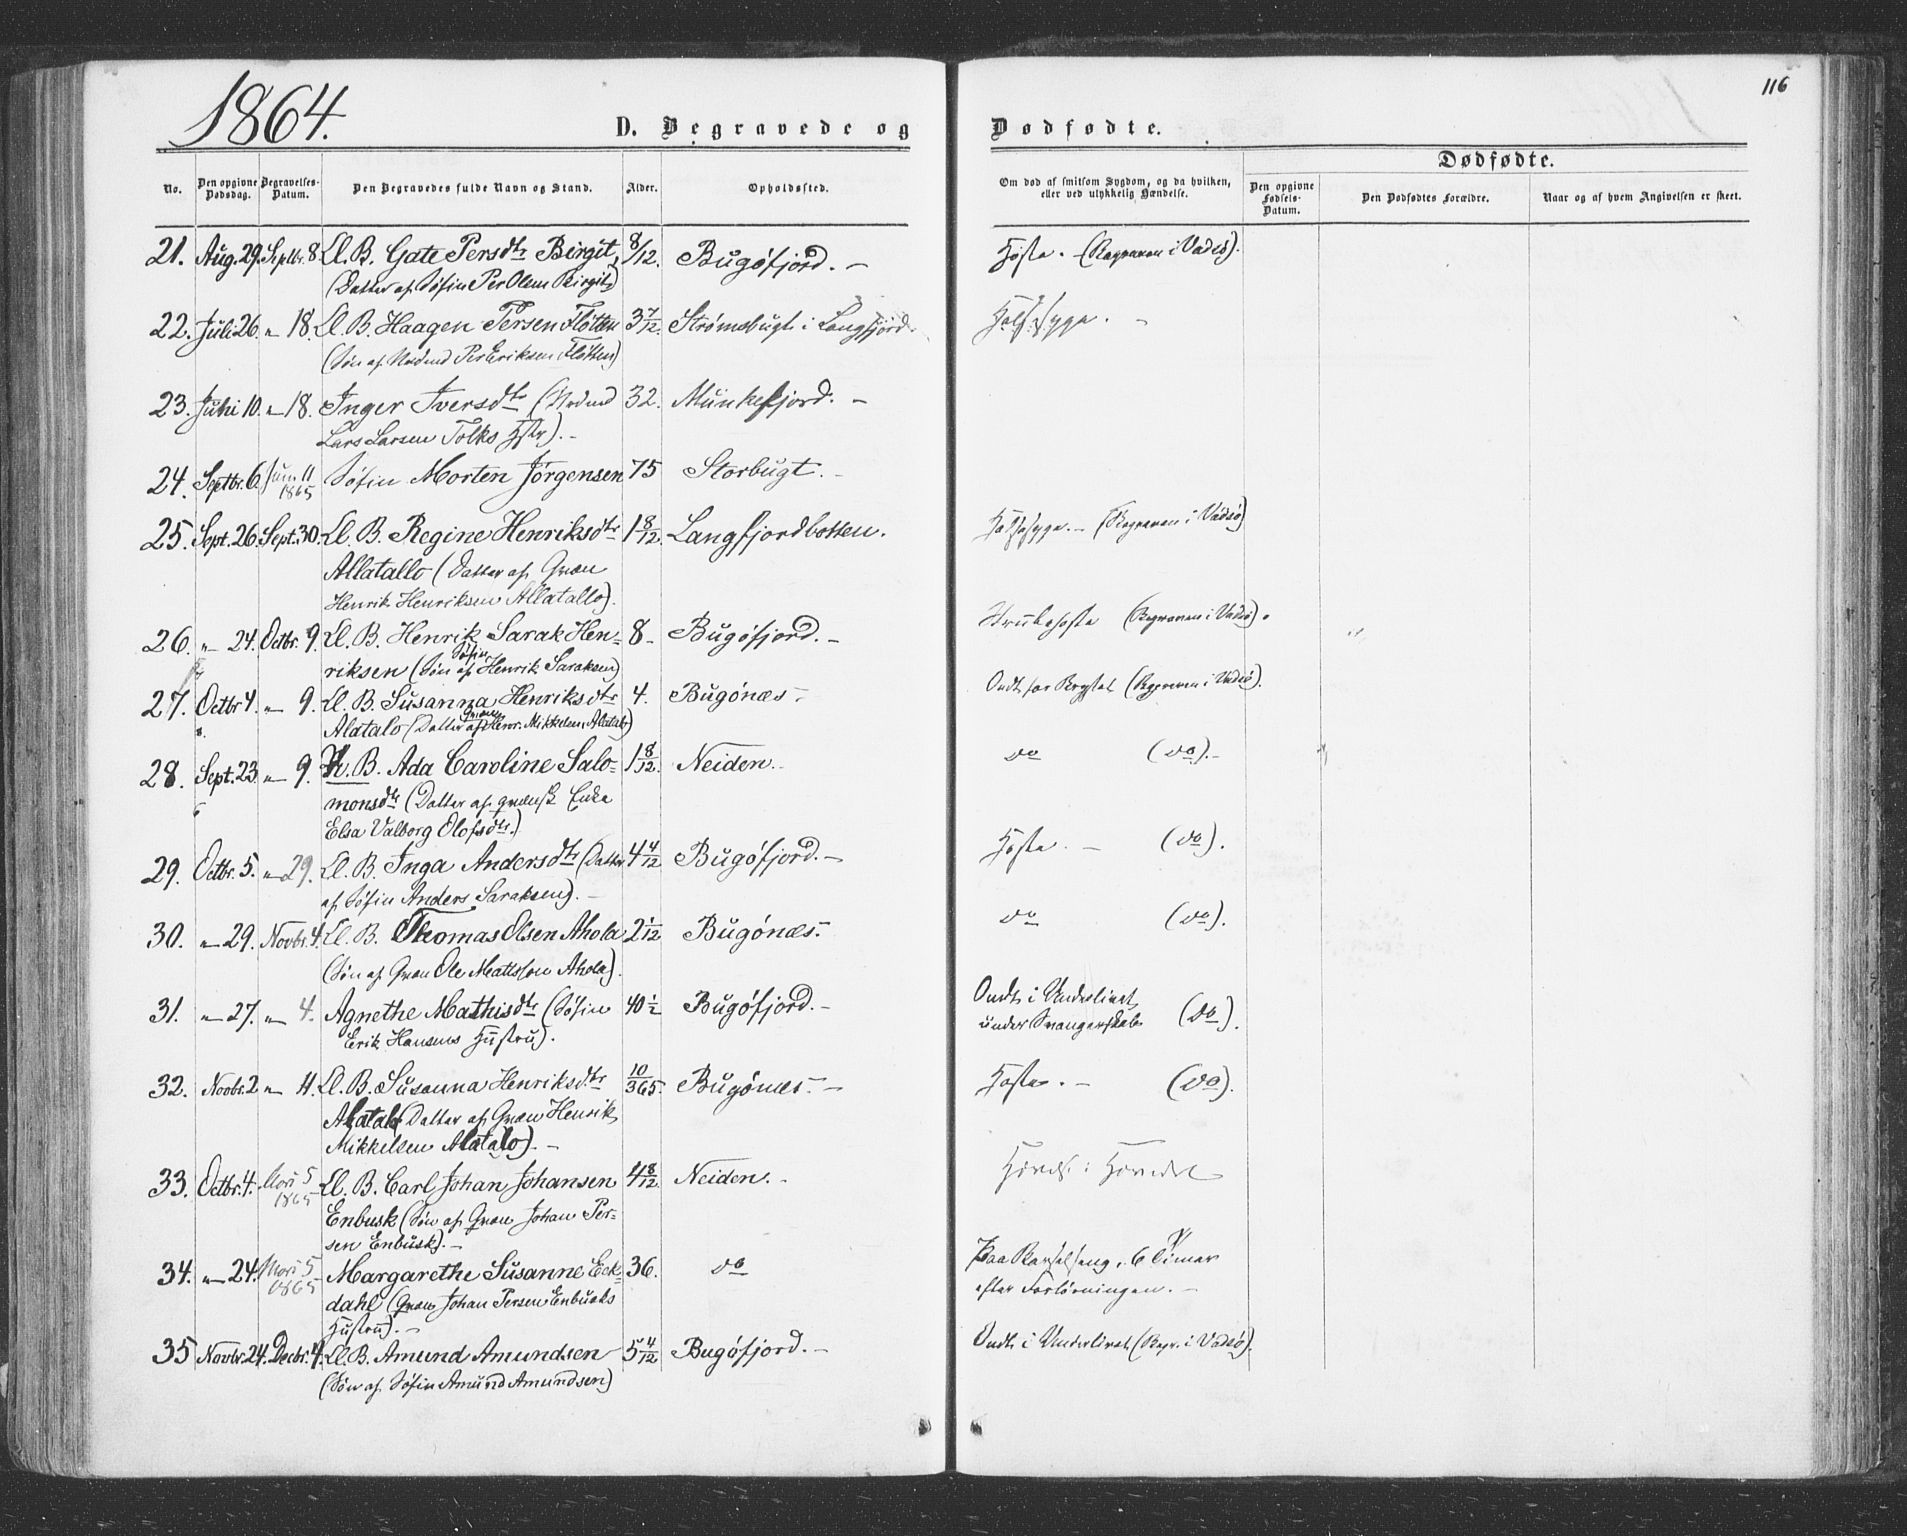 1864.
116
D. Begravede og Dødfødte.
Dødfødte.
No.
Den opgivne Dødsdag.
Begravelses-Datum.
Den Begravedes fulde Navn og Stand.
Alder.
Opholdssted.
Om død af smitsom Sygdom, og da hvilken, eller ved ulykkelig Hændelse.
Den opgivne Fødsels-Datum.
Den Dødfødtes Forældre.
Naar og af hvem Angivelsen er skeet.
21. Aug. 29. Septbr. 8. Ll. B. Gate Persdtr Birgit, 8/12. Bugöfjord. – Hoste. – (Begraven i Vadsö).
(Datter af Søfin Per Olsen Birgit)
22. Juli 26. " 18. Ll. B. Haagen Persen Flötten 3 7/12. Strømsbugt i Langfjord. Halssyge. –
(Søn af Nordmd Per Eriksen Flötten)
23. 10. " 18. Inger Iversdtr (Nordmd 32. Munkefjord. –
Lars Larsen Tolks Hstr). –
24. Septbr. 6. Juni 11 1865 Søfin Morten Jörgensen 75 Storbugt. –
25. Sept. 26. Sept. 30. Ll. B. Regine Henriksdtr 1 8/12. Langfjordbotten. Halssyge. – (Begraven i Vadsö)
Allatallo (Datter af Qvæn
Henrik Henriksen Allatallo).
26. " 24. Octbr. 9. Ll. B. Henrik Sarak Hen- 8 – Bugöfjord. – Strubehoste (Begraven i Vadsö).
riksen (Søn af Søfin Henrik Saraksen)
27. Octbr 4. " 9. Ll. B. Susanna Henriksdtr 4. Bugönæs – Ondt for Brystet (Begraven i Vadsö).
Alatalo (Datter af Qvæn Henr. Mikkelsen Alatalo)
28. Sept. 23. " 9. B. Ada Caroline Salo- 1 8/12. Neiden. – do (do). –
monsdtr (Datter af qvænsk Enke
Elsa Valborg Olofsdtr.)
29. Octbr. 5. " 29. Ll. B. Inga Andersdtr (Datter 4 4/12 Bugöfjord. – Hoste. – (do).
af Søfin Anders Saraksen). –
30. " 29. Novbr. 4. Ll. B. Thomas Olsen Ahola 2 1/12 Bugönæs. – do (do).
(Søn af Qvæn Ole Mattsson Ahola).
31. " 27. " 4. Agnethe Mathisdtr (Søfin 40 1/2 Bugöfjord. – Ondt i Underlivet
Erik Hansens Hustru). under Svangerskab (do).
32. Novbr. 2 " 4. Ll. B. Susanna Henriksdtr 10/365. Bugönæs. – Hoste. – (do).
Alatalo (Datter af Qvæn Henrik
Mikkelsen Alatalo). –
33. Octbr. 4. 5 1865 Ll. B. Carl Johan Johansen 4 8/12. Neiden. – i Hovedet
Enbusk (Søn af Qvæn Johan Per-
sen Enbusk). –
34. " 24. 5 1865 Margarethe Susanne Eck- 36. do Paa Barselseng, 6 Timer
dahl (Qvæn Johan Persen Enbusks efter Forløsningen. –
Hustru). –
35 Novbr. 24. Decbr. 4. Ll. B. Amund Amundsen 5 4/12 Bugöfjord. – Ondt i Underlivet (Begr. i Vadsö).
(Søn af Søfin Amund Amundsen)